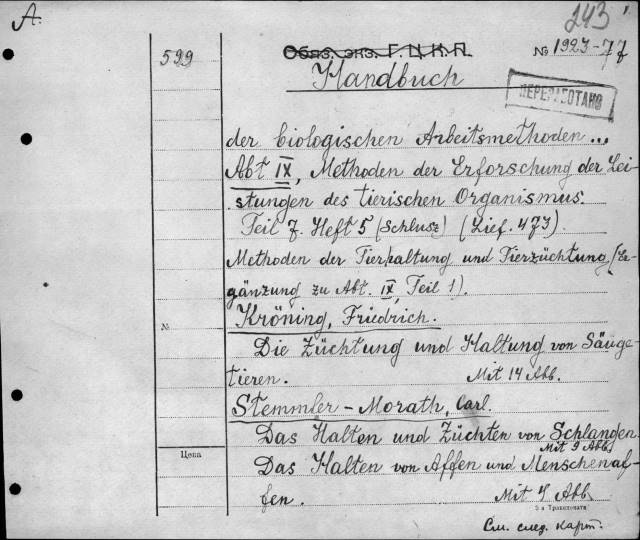 А.
243
599
Обяз. экз. Г.Ц.К.П.
№ 1923-77
Handbuch
ПЕРЕРАБОТАНО
der biologischen Arbeitsmethoden...
Abt IX, Methoden der Erforschung der Lei-
stungen des tierischen Organismus.
Teil 7. Heft 5 (Schlusz) (Lief. 473).
Methoden der Tierhaltung und Tierzüchtung (Er-
gänzung zu Abt. IX, Teil 1).
№
Kröning, Friedrich.
Die Züchtung und Haltung von Säuge-
tieren. Mit 14 Abb.
Stemmler-Morath, Carl.
Das Halten und Züchten von Schlangen
Mit 9 Abb.
Цена
Das Halten von Affen und Menschenaf-
fen. Mit 4 Abb
См. след. карт.